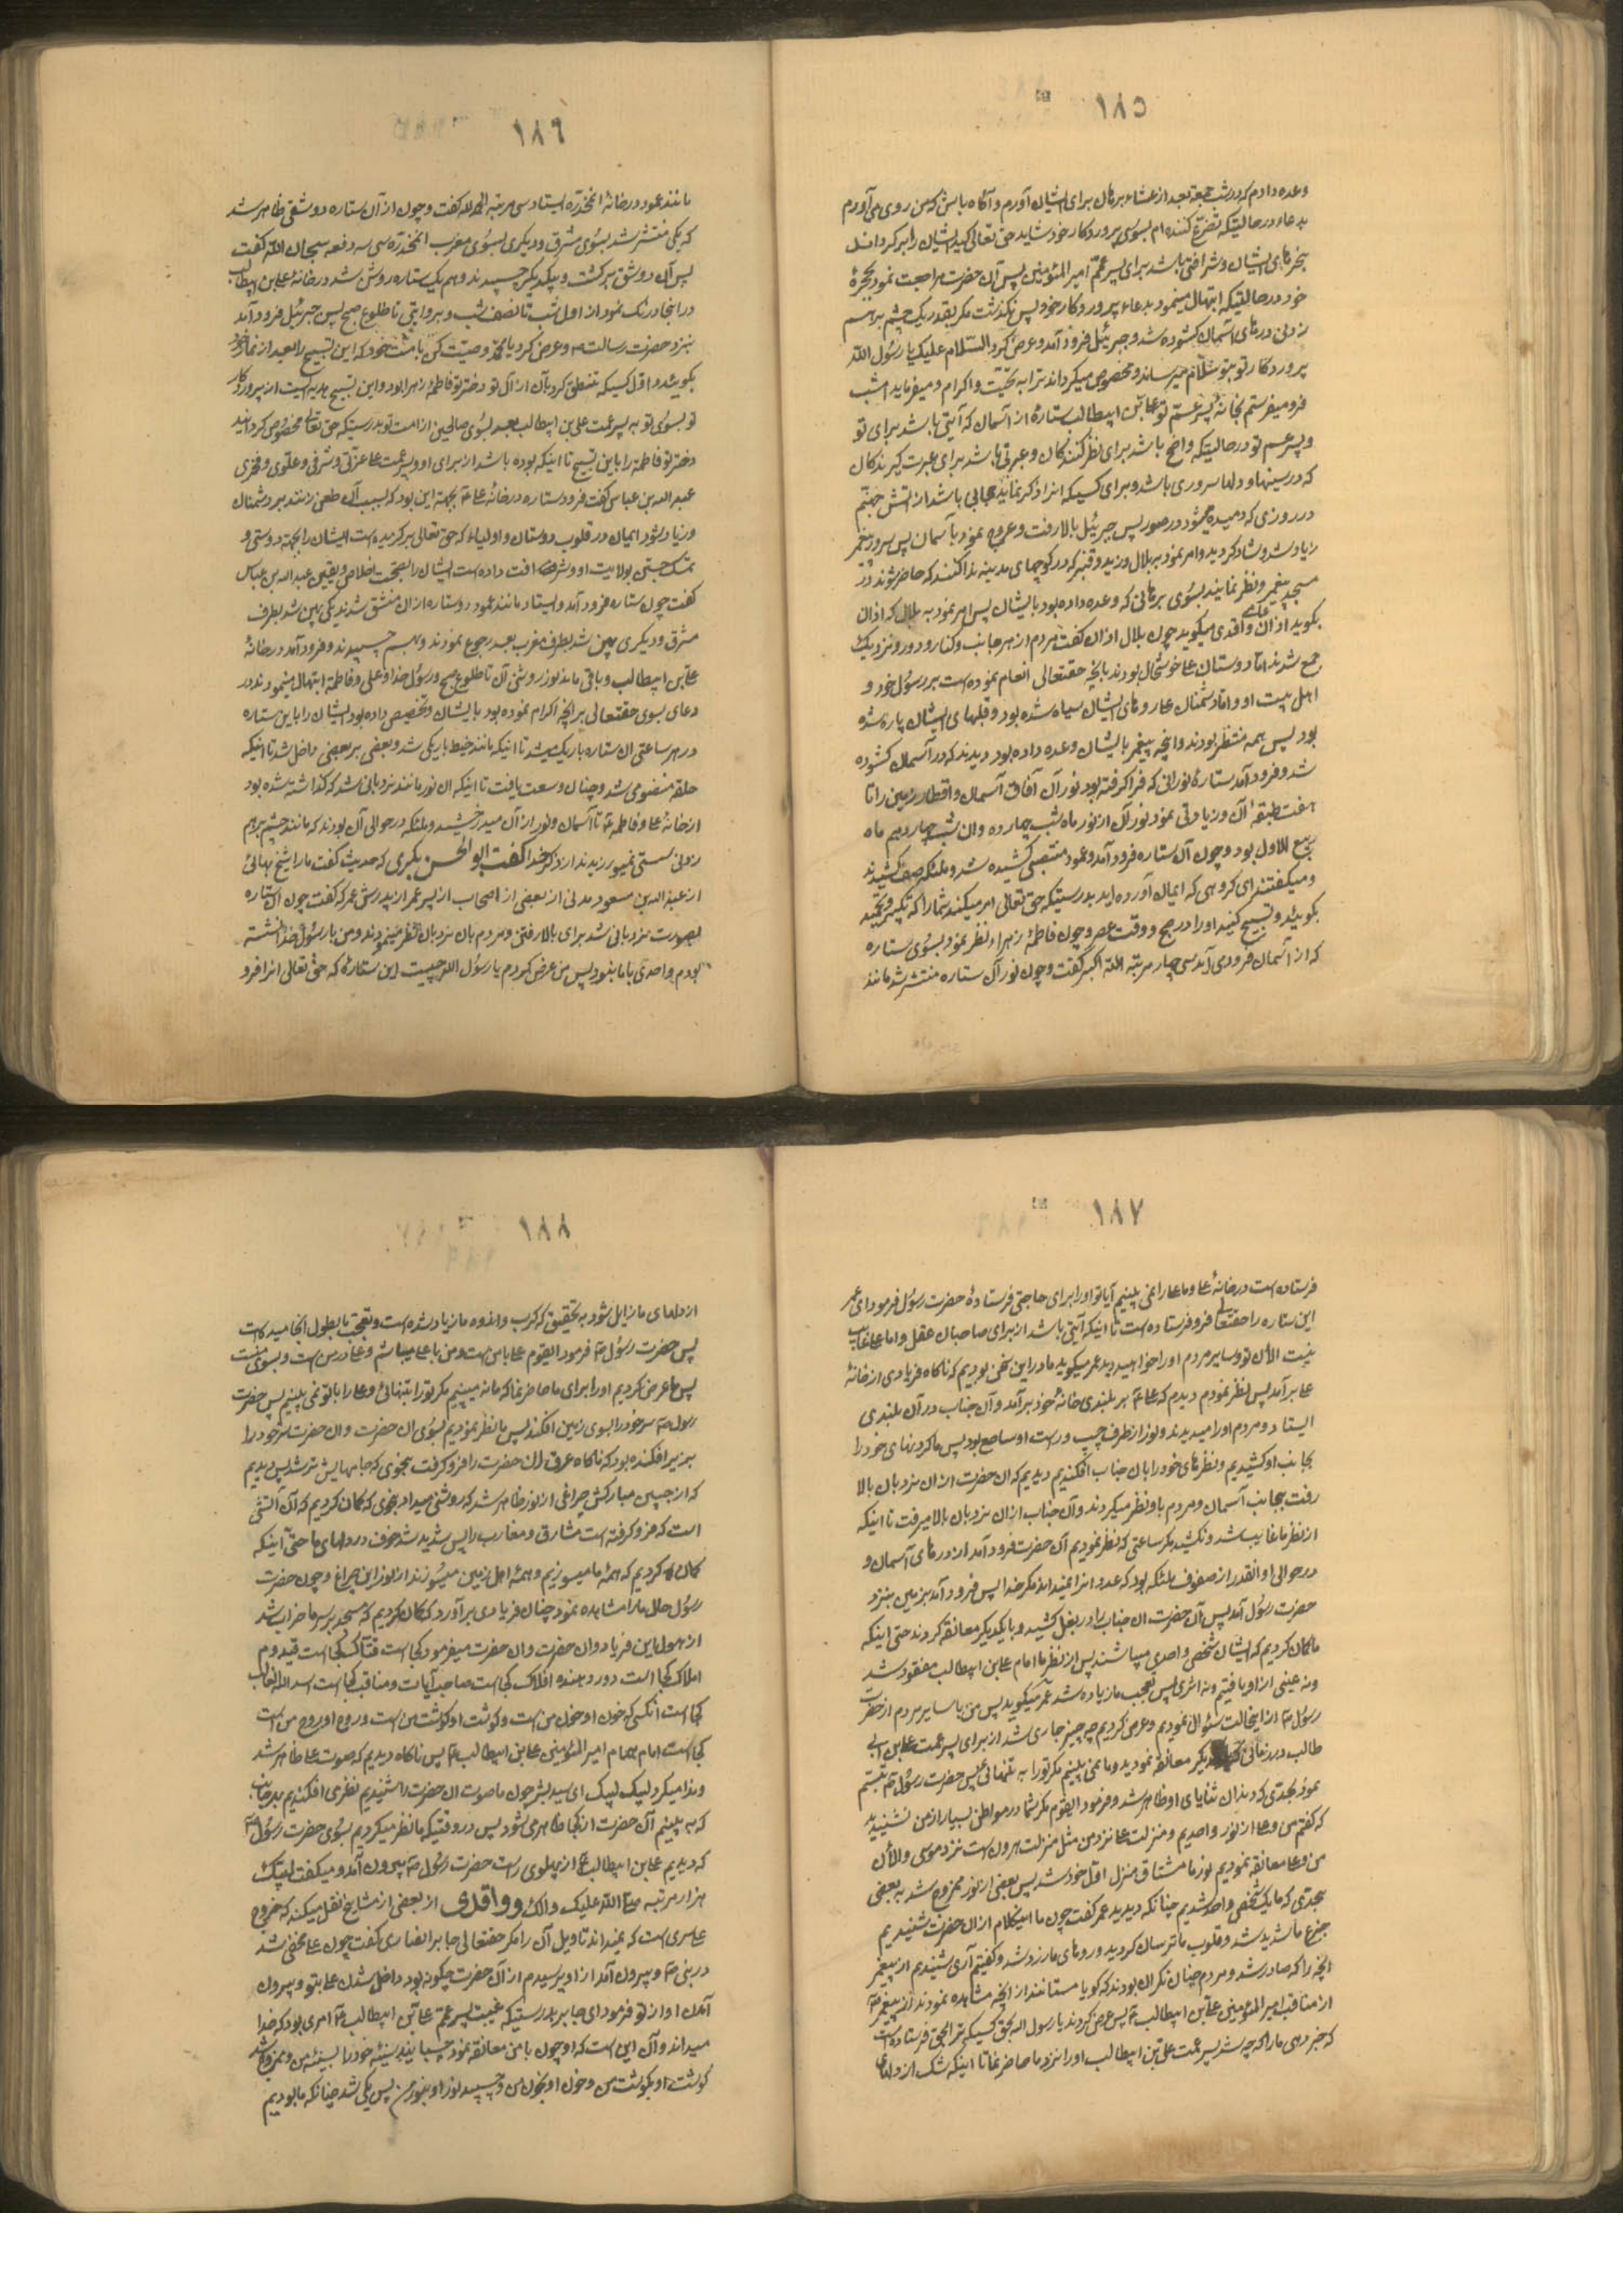 ۱۸۵
وعده دادم که در شب جمعه بعد از عشاء برهان برای ایشان آورم و آگاه باش که من روی می آورم
بدعاء در حالتیکه تضرع کننده ام بسوی پروردگار خود شاید حق تعالی کید ایشان را برگرداند
بنحرهای ایشان و شرافتی باشد برای پسر عمّم امیر المؤمنین پس آن حضرت مراجعت نمود بحجرهٔ
خود در حالتیکه ابتهال مینمود بدعاء پروردگار خود پس نگذشت مگر بقدر یک چشم برهم
زدن درهای آسمان گشوده شد و جبرئیل فرود آمد و عرض کرد السّلام علیک یا رسول الله
پروردگار تو بتو سلام میرساند و مخصوص میگرداند ترا به تحیّت و اکرام و میفرماید امشب
فرو میفرستم بخانهٔ پسر عمّ تو علی بن ابیطالب ستارهٔ از آسمان که آیتی باشد برای تو
و پسر عم تو در حالتیکه واضح باشد برای نظر کنندکان و عبرتی باشد برای عبرت گیرندکان
که در سینها و دلها سروری باشد و برای کسیکه انرا ذکر نماید حجابی باشد از آتش جهنّم
در روزی که دمیده میشود در صور پس جبرئیل بالا رفت و عروج نمود بآسمان پس سرور پیغمبر
زیاد شد و شاد گردید و امر نمود به بلال و زید و قنبر که در کوچهای مدینه ندا کنند که حاضر شوند در
مسجد پیغمبر و نظر نمایند بسوی برهانی که وعده داده بود بایشان پس امر نمود به بلال که اذان
بگوید اذان و اقدی میگوید چون بلال اذان گفت مردم از هر جانب و کنار و دور و نزدیک
جمع شدند امّا دوستان علی خوشحال بودند بانچه حقتعالی انعام نموده است بر رسول خود و
اهل بیت او و امّا دشمنان علی روهای ایشان سیاه شده بود و قلبهای ایشان پاره شده
بود پس همه منتظر بودند و انچه پیغمبر بایشان وعده داده بود دیدند که در آسمان گشوده
شد و فرود آمد ستارهٔ نورانی که فرا گرفته بود نور آن آفاق آسمان و اقطار زمین را تا
هفت طبقهٔ آن و زیادتی نمود نور آن از نور ماه شب چهارده و ان شب چهاردهم ماه
ربیع الاول بود و چون آن ستاره فرود آمد و عمود منتصبی کشیده شد و ملئکه صف کشیدند
و میگفتند ای گروهی که ایمان آورده اید بدرستیکه حق تعالی امر میکند شما را که تکبیر و تحمید
بگوئید و تسبیح کنید او را در صبح و وقت عصر و چون فاطمهٔ زهراء نظر نمود بسوی ستاره
که از آسمان فرود می آمد سی چهار مرتبه الله اکبر گفت و چون نور آن ستاره منتشر شد مانند
۱۸۶
مانند عمود در خانهٔ انمخدّره ایستاد سی مرتبه الحمد لله گفت و چون از آن ستاره دو شقی ظاهر شد
که یکی منتشر شد بسوی مشرق و دیگری بسوی مغرب انمخدّره سی سه دفعه سبحان الله گفت
پس آن دو شق برگشت و بیکدیگر چسپیدند و هم یک ستاره روشن شد در خانه علی بن ابیطالب
در انجا درنگ نمود از اول شب تا نصف شب و بروایتی تا طلوع صبح پس جبرئیل فرود آمد
بنزد حضرت رسالت ص و عرض کرد یا محمّد وصیّت کن بامّت خود که این تسبیح را بعد از نماز خود
بگویند و اوّل کسیکه تنطق کرد بآن از آل تو دختر تو فاطمهٔ زهرا بود و این تسبیح هدیه است از پروردکار
تو بسوی تو به پسر عمت علی بن ابیطالب بعد بسوی صالحین از امت تو بدرستیکه حق تعالی مخصوص گردانید
دختر تو فاطمه را باین تسبیح تا اینکه بوده باشد از برای او و پسر عمت علی عزتی و شرفی و علوّی و فخری
عبد الله بن عباس گفت فرود ستاره در خانهٔ علی ع بجهة این بود که بسبب آن طعن زنند بر دشمنان
و زیاد شود ایمان در قلوب دوستان و اولیاء که حق تعالی برگزیده است ایشان را بجهة دوستی و
تمسّک جستن بولایت او و شرافت داده است ایشان را بصحّت اخلاص و یقین عبد الله بن عباس
گفت چون ستاره فرود آمد و ایستاد مانند عمود دو ستاره از ان منشق شدند یکی پهن شد بطرف
مشرق و دیگری پهن شد بطرف مغرب بعد رجوع نمودند و بهم چسپیدند و فرود آمد در خانهٔ
علی بن ابیطالب و باقی ماند نور روشنی آن تا طلوع صبح و رسول خدا و علی و فاطمه ابتهال مینمودند در
دعای بسوی حقتعالی بر انچه اکرام نموده بود بایشان و تخصیص داده بود ایشان را باین ستاره
در هر ساعتی ان ستاره باریک میشد تا اینکه مانند خیط باریکی شد و بعضی بر بعضی داخل شد تا اینکه
حلقه منضومی شد و چنان وسعت یافت تا اینکه ان نور مانند نردبانی شد که گذاشته شده بود
از خانهٔ علی و فاطمه ع تا آسمان و نور از آن میدرخشید و ملئکه در حوالی آن بودند که مانند چشم برهم
زدن سستی نمیورزیدند از ذکر خدا گفت ابو الحسن بکری که حدیث گفت ما را شیخ بهائی
از عبد الله بن مسعود مدنی از بعضی از اصحاب از پسر عمر از پدرش عمر که گفت چون ان ستاره
بصورت نردبانی شد برای بالا رفتن و مردم بان نردبان نظر مینمودند و من با رسول خدا نشسته
بودم و احدی با ما نبود پس من عرض کردم یا رسول الله چیست این ستارهٔ که حق تعالی انرا فرو
۱۸۷
فرستاده است در خانهٔ علی و ما علی را نمی بینیم آیا تو او را برای حاجتی فرستادهٔ حضرت رسول فرمود ای عمر
این ستاره را حقتعالی فرو فرستاده است تا اینکه آیتی باشد از برای صاحبان عقل و اما علی غایب
نیست الأن تو و سایر مردم او را خواهید دید عمر میگوید ما در این سخن بودیم که ناکاه فریادی از خانهٔ
علی برآمد پس نظر نمودم دیدم که علی ع بر بلندی خانهٔ خود برآمد و آن جناب در آن بلندی
ایستاد و مردم او را میدیدند و نور از طرف چپ و راست او ساطع بود پس ما گردنهای خود را
بجانب او کشیدیم و نظرهای خود را بان جناب افکندیم دیدیم که ان حضرت از ان نردبان بالا
رفت بجانب آسمان و مردم باو نظر میکردند و آن جناب از ان نردبان بالا میرفت تا اینکه
از نظر ما غایب شد و نکشید مگر ساعتی که نظر نمودیم آن حضرت فرود آمد از درهای آسمان و
در حوالی او انقدر از صفوف ملئکه بود که عدد انرا نمیداند مگر خدا پس فرود آمد بزمین بنزد
حضرت رسول آمد پس آن حضرت ان جناب را در بغل کشید و با یکدیگر معانقه کردند حتی اینکه
ما گمان کردیم که ایشان شخص واحدی میباشند پس از نظر ما امام علی بن ابیطالب مفقود شد
و نه عینی از او یافتیم و نه اثری پس تعجب ما زیاده شد عمر میگوید پس من با سایر مردم از حضرت
رسول ص از اینحالت سئوال نمودیم و عرض کردیم چه چیز جاری شد از برای پسر عمت علی بن ابی
طالب در زمانی که با یکدیگر معانقه نمودید و ما نمی بینیم مگر تو را به تنهائی پس حضرت رسول ص تبسّم
نمود بحدّی که دندان ثنایای او ظاهر شد و فرمود ایقوم مگر شما در مواطن بسیار از من نشنیدید
که گفتم من و علی از نور واحدیم و منزلت علی نزد من مثل منزلت هرون است نزد موسی و الأن
من و علی معانقه نمودیم نور ما مشتاق منزل اوّل خود شد پس بعضی از نور ممزوج شد به بعضی
بحدّی که ما یک شخص واحد شدیم چنانکه دیدید عمر گفت چون ما اینکلام از ان حضرت شنیدیم
جزع ما شدید شد و قلوب ما ترسان گردید و روهای ما زرد شد و گفتیم آری شنیدیم از پیغمبر
انچه را که صادر شد و مردم چنان نگران بودند که گویا مستانند از انچه مشاهده نمودند از پیغمبر ص
از مناقب امیر المؤمنین علی بن ابیطالب ع پس عرض کردند یا رسول الله بحق کسیکه ترا بحق فرستاده است
که خبر دهی ما را که چه شد پسر عمت علی بن ابیطالب او را نزد ما حاضر نما تا اینکه شک از دلهای
۱۸۸
از دلهای ما زایل شود به تحقیق که کرب و اندوه ما زیاد شده است و تعجب ما بطول انجامیده است
پس حضرت رسول ص فرمود ایقوم علی با من است و من با علی میباشم و علی در من است و بسوی منست
پس ما عرض کردیم او را برای ما حاضر نما که ما نه میبینیم مگر تو را بتنهائی و علی را با تو نمی بینیم پس حضرت
رسول ص سر خود را بسوی زمین افکند پس ما نظر نمودیم بسوی ان حضرت و ان حضرت سر خود را
بزیر افکنده بود که ناکاه عرق ان حضرت را فرو گرفت بنحوی که جامهایش تر شد پس دیدیم
که از جبین مبارکش چراغی از نور ظاهر شد که روشنی میداد بنحوی که گمان کردیم که آن آتشی
است که فرو گرفته است مشارق و مغارب را پس شدید شد خوف در دلهای ما حتی آینکه
گمان کردیم که همهٔ ما میسوزیم و همهٔ اهل زمین میسوزند از نور این چراغ و چون حضرت
رسول حال ما را مشاهده نمود چنان فریادی برآورد که گمان کردیم که مسجد بر سر ما خراب شد
از هول این فریاد و ان حضرت و ان حضرت میفرمود کجا است فتّاک کجا است قیدوم
املاک کجا است دور دهنده افلاک کجا است صاحب آیات و مناقب کجا است اسد الله الغالب
کجا است انکسی که خون او خون من است و گوشت او گوشت من است و روح او روح من است
کجا است امام همام امیر المؤمنین علی بن ابیطالب ع پس ناکاه دیدیم که صوت علی ظاهر شد
و ندا میکرد لبیک لبیک ای سید بشر چون ما صوت ان حضرت را شنیدیم نظری افکندیم بدرخانه
که به بینیم آن حضرت از کجا ظاهر می شود پس در وقتیکه ما نظر میکردیم بسوی حضرت رسول ص
که دیدیم علی بن ابیطالب ع از پهلوی راست حضرت رسول ص بیرون آمد و میگفت لبیک
هزار مرتبه صلی الله علیک و الک و واقدی از بعضی از مشایخ نقل میکند که خروج
علی سری است که نمیداند تاویل آن را مگر حقتعالی جابر انصاری گفت چون علی مخفی شد
در نبی ص و بیرون آمد از او پرسیدم از آن حضرت چگونه بود داخل شدن علی بتو و بیرون
آمدن او از تو فرمود ای جابر بدرستیکه غیبت پسر عمّم علی بن ابیطالب ع امری بود که خدا
میداند و آن این است که او چون با من معانقه نمود چسبانید سینه خود را بسینهٔ من و ممزوج شد
گوشت او بگوشت من و خون او بخون من و چسپید نور او بنور من پس یکی شد چنانکه ما بودیم